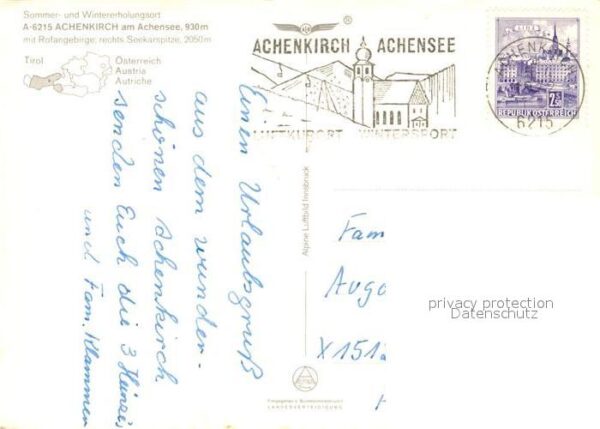 Sommer- und Wintererholungsort
A-6215 ACHENKIRCH am Achensee, 930m
mit Rofangebirge, rechts Seekarspitze, 2050m
Tirol
Österreich
Austria
Autriche
®
ACHENKIRCH ACHENSEE
LUFTKURORT WINTERSPORT
ACHENKIRCH
6215
2.50
REPUBLIK ÖSTERREICH
Einen Urlaubsgruß
aus dem wunder-
schönen Achenkirch
senden Euch die 3 Heinzis
und Fam. Klammer
Alpine Luftbild Innsbruck
Fam
Augo
X151a
privacy protection
Datenschutz
Freigegeben v. Bundesministerium f.
LANDESVERTEIDIGUNG